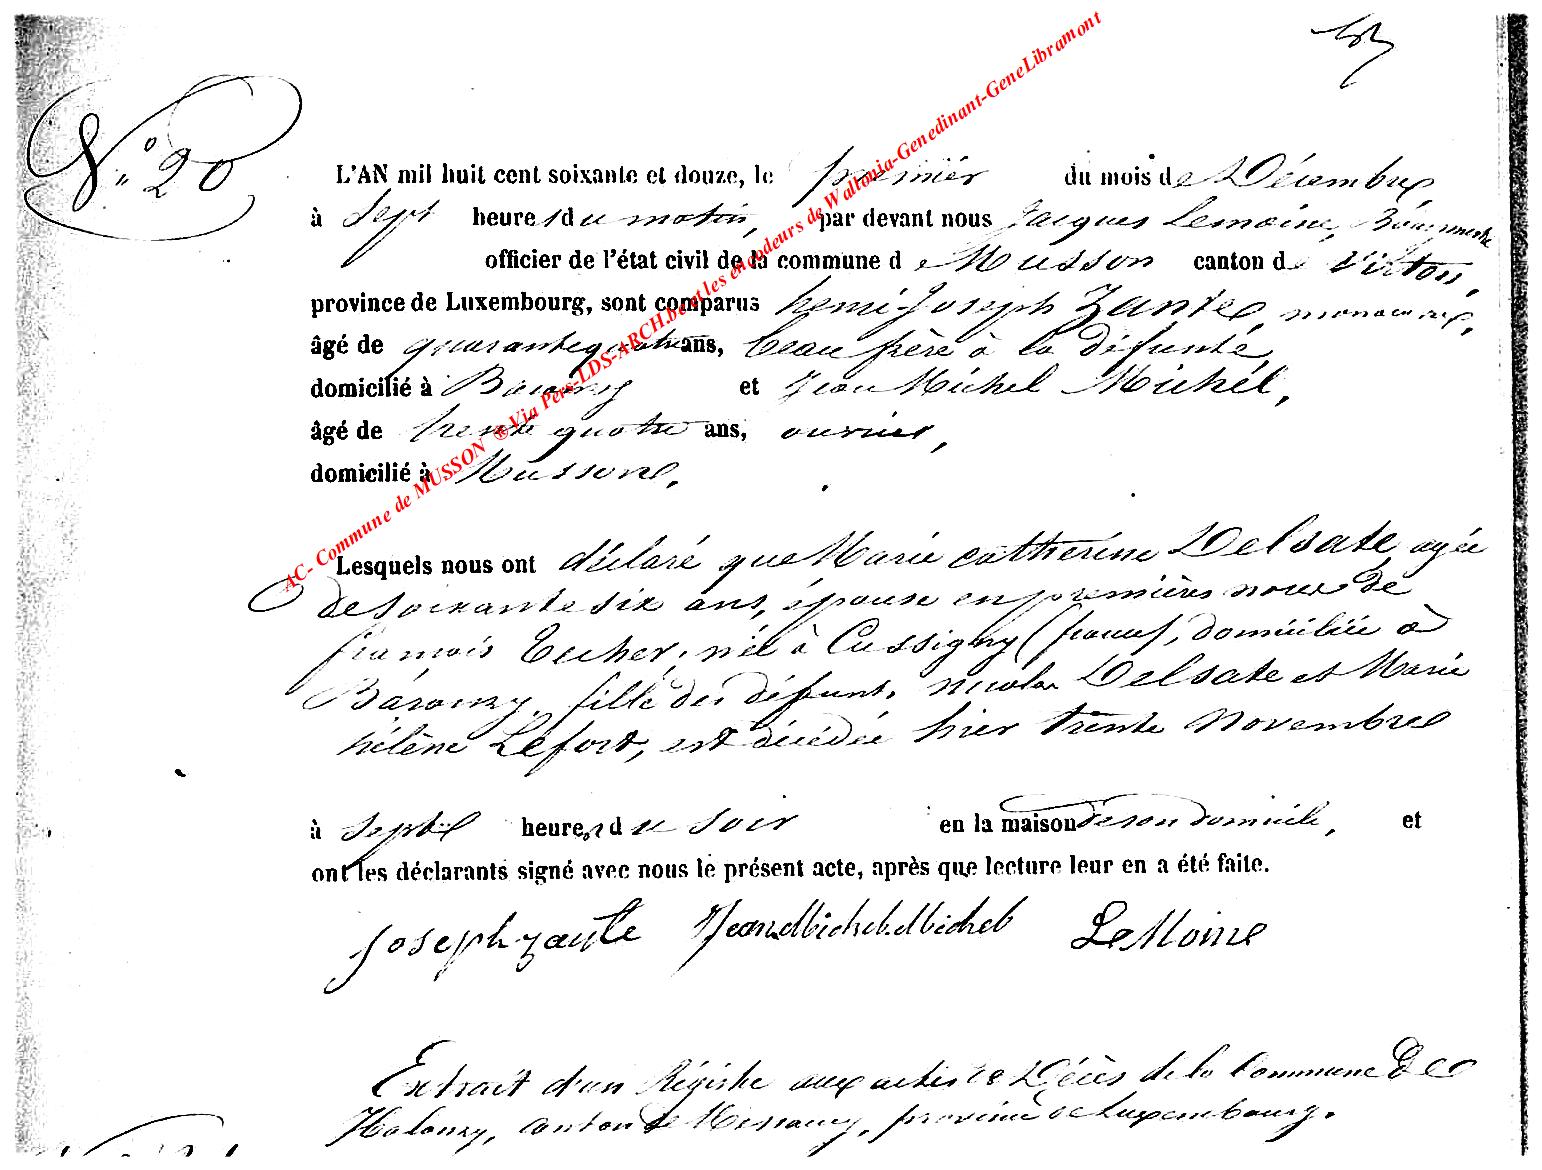 N° 20
L'AN mil huit cent soixante et douze, le premier du mois de Décembre
à sept heures du matin, par devant nous Jacques Lemoine, Bourgmestre
officier de l'état civil de la commune de Musson canton de Virton,
province de Luxembourg, sont comparus henri-Joseph Zante,
âgé de quarante quatre ans, beau frère à la défunte,
domicilié à Baranzy et Jean Michel Michel,
âgé de trente quatre ans, ouvrier,
domicilié à Musson,
AC- Commune de MUSSON ® Via Pers-LDS-ARCH.be et les encodeurs de Wallonia-Genedinant-GeneLibramont
Lesquels nous ont déclaré que Marie catherine Delsate, agée
de soixante six ans, épouse en premières noces de
françois, née à Cussigny (france), domiciliée à
Baranzy, fille des défunts Nicolas Delsate et Marie
hélène Lefort, est décédée hier trente Novembre
à sept heures du soir en la maison de son domicile, et
ont les déclarants signé avec nous le présent acte, après que lecture leur en a été faite.
Joseph zante Jean Michel Michel LeMoine
Extrait d'un Régistre aux actes de Décès de la Commune de
Halanzy, canton de Messancy, province de Luxembourg.